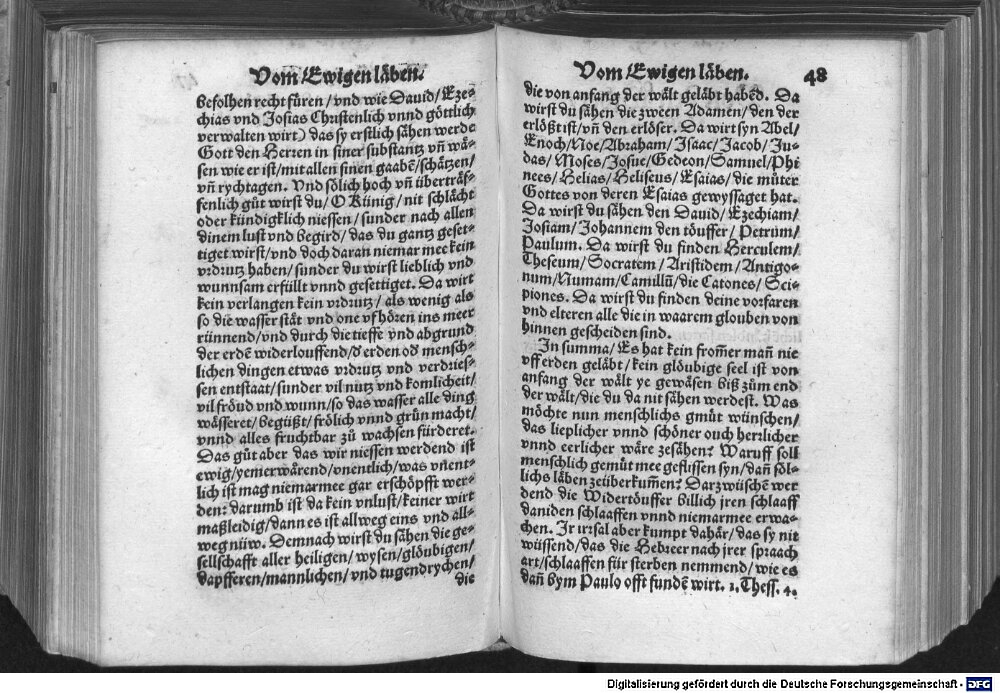 Vom Ewigen läben.
befolhen recht füren/ vnd wie Dauid/ Eze⸗
chias vnd Josias Christenlich vnnd göttlich
verwalten wirt) das sy erstlich sähen werde
Gott den Herren in siner substantz vn̄ wä⸗
sen wie er ist/ mit allen sinen gaabē/ schätzen/
vn̄ rychtagen. Vnd sölich hoch vn̄ überträf⸗
fenlich gůt wirst du/ O Künig/ nit schlächt
oder kündigklich niessen/ sunder nach allen
dinem lust vnd begird/ das du gantz geset⸗
tiget wirst/ vnd doch daran niemar mee kein
vrdrutz haben/ sunder du wirst lieblich vnd
wunnsam erfüllt vnnd gesettiget. Da wirt
kein verlangen kein vrdrutz/ als wenig als
so die wasser stät vnd one vfhören ins meer
rünnend/ vnd durch die tieffe vnd abgrund
der erdē widerlouffend/ d erden od mensch⸗
lichen dingen etwas vrdrutz vnd verdries⸗
sen entstaat/ sunder vil nutz vnd komlicheit/
vil fröud vnd wunn/ so das wasser alle ding
wässeret/ begüßt/ frölich vnnd grün macht/
vnnd alles fruchtbar zů wachsen fürderet.
Das gůt aber das wir niessen werdend ist
ewig/ yemerwärend/ vnentlich/ was vnent⸗
lich ist mag niemarmee gar erschöpfft wer⸗
den: darumb ist da kein vnlust/ keiner wirt
maßleidig/ dann es ist allweg eins vnd all⸗
weg nüw. Demnach wirst du sähen die ge⸗
sellschafft aller heiligen/ wysen/ glöubigen/
dapfferen/ mannlichen/ vnd tugendrychen/
die
Vom Ewigen läben. 48
die von anfang der wält geläbt habēd. Da
wirst du sähen die zween Adamen/ den der
erlößt ist/ vn̄ den erlöser. Da wirt syn Abel/
Enoch/ Noe/ Abraham/ Isaac/ Jacob/ Ju⸗
das/ Moses/ Josue/ Gedeon/ Samuel/ Phi
nees/ Helias/ Heliseus/ Esaias/ die můter
Gottes von deren Esaias gewyssaget hat.
Da wirst du sähen den Dauid/ Ezechiam/
Josiam/ Johannem den töuffer/ Petrum/
Paulum. Da wirst du finden Herculem/
Theseum/ Socratem/ Aristidem/ Antigo⸗
num/ Numam/ Camillū/ die Catones/ Sci⸗
piones. Da wirst du finden deine vorfaren
vnd elteren alle die in waarem glouben von
hinnen gescheiden sind.
In summa/ Es hat kein from̄er man̄ nie
vff erden geläbt/ kein glöubige seel ist von
anfang der wält ye gewäsen biß zům end
der wält/ die du da nit sähen werdest. Was
möchte nun menschlichs gmüt wünschen/
das lieplicher vnnd schöner ouch herrlicher
vnnd eerlicher wäre zesähen? Waruff soll
menschlich gemüt mee geflissen syn/ dan̄ söl⸗
lichs läben zeüberkum̄en? Darzwüschē wer
dend die Widertöuffer billich jren schlaaff
daniden schlaaffen vnnd niemarmee erwa⸗
chen. Ir irrsal aber kumpt dahär/ das sy nit
wüssend/ das die Hebreer nach jrer spraach
art/ schlaaffen für sterben nemmend/ wie es
dan̄ bym Paulo offt fundē wirt. 1. Thess. 4.
Digitalisierung gefördert durch die Deutsche Forschungsgemeinschaft - DFG